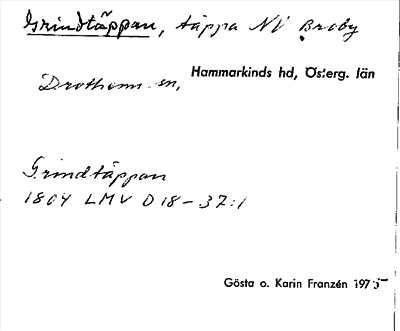 Grindtäppan, täppa NV Broby
Hammarkinds hd, Österg. län
Drothems sn,
Grindtäppan
1804 LMV D18-37:1
Gösta o. Karin Franzén 1975